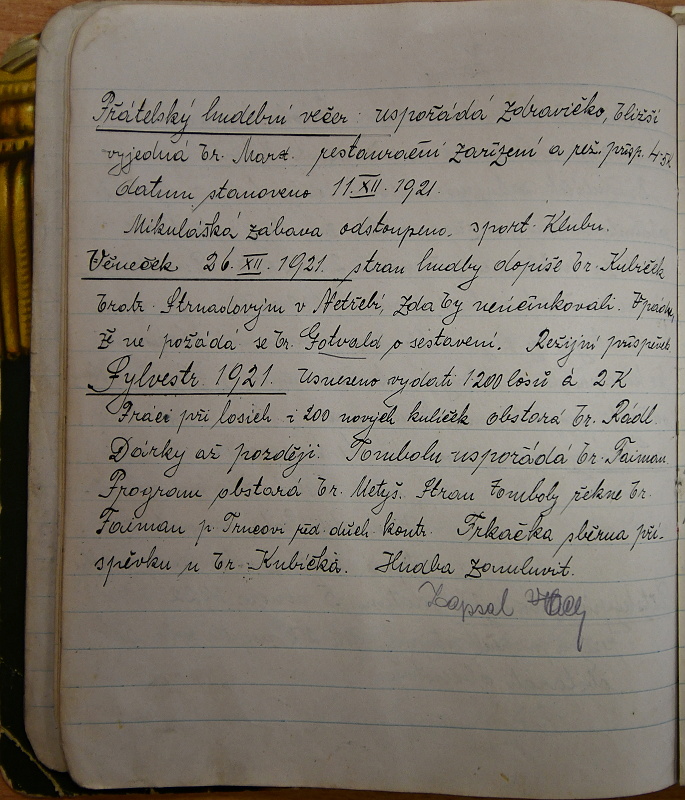 Přátelský hudební večer: uspořádá Zdravíčko, bližší
vyjedná br. Marx. restaurační zařízení a rež. přísp. 4-5K
datum stanoveno 11.XII.1921.
Mikulášká zábava odstoupeno sport. Klubu.
Věneček 26.XII.1921. stran hudby dopíše br. Kubíček
bratr. Strnadovým v Netřebí, zda by neúčinkovali. V pádu,
že né požádá se br. Gotvald o sestavení. Režijní příspěvek
Sylvestr. 1921. Usneseno vydati 1200 losů á 2 K
Práci při losích i 200 nových kuliček obstará br. Rádl.
Dárky až později. Tombolu uspořádá br. Faiman.
Program obstará br. Metyš. Stran tomboly řekne br.
Faiman p. Trucovi řed. důch. kontr. Frkačka sběrna pří-
spěvku u br. Kubíčka. Hudba zamluvit.
Zapsal